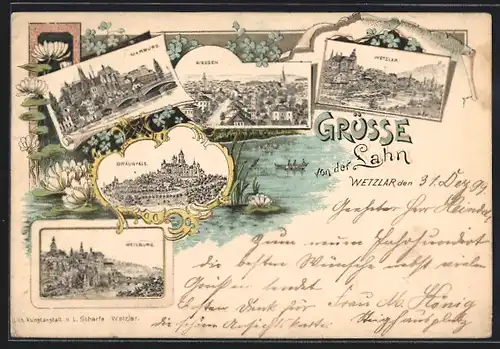 MARBURG.
GIESSEN
WETZLAR.
GRÜSSE
von der
Lahn
BRAUNFELS.
WETZLAR den 31. Dez. 99
Geehrter Herr
WEILBURG.
Zum neuen Jahrhundert
die besten Wünsche nebst vielen
Grüßen sendet
Besten Dank für Frau M. König
die schöne Ansichtskarte.
Lith. Kunstanstalt v. L. Scharfe Wetzlar.